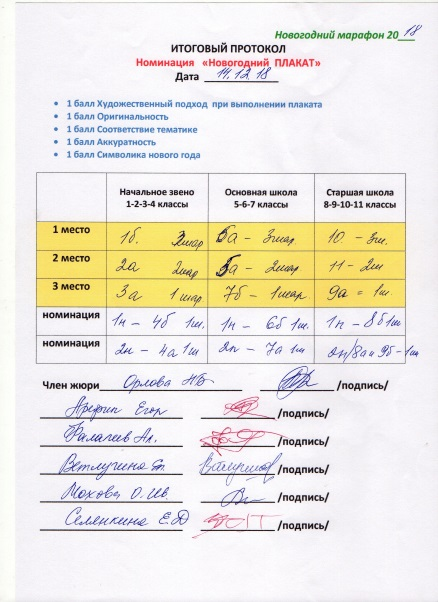 Новогодний марафон 2018
ИТОГОВЫЙ ПРОТОКОЛ
Номинация «Новогодний ПЛАКАТ»
Дата 14.12.18
• 1 балл Художественный подход при выполнении плаката
• 1 балл Оригинальность
• 1 балл Соответствие тематике
• 1 балл Аккуратность
• 1 балл Символика нового года
Начальное звено Основная школа Старшая школа
1-2-3-4 классы 5-6-7 классы 8-9-10-11 классы
1 место 1б. 3шар 6а - 3шар. 10. - 3ш.
2 место 2а 2шар 5а - 2шар. 11 - 2ш
3 место 3а 1шар. 7б - 1шар. 9а = 1ш.
номинация 1н - 4б 1ш. 1н - 6б 1ш. 1н - 8б 1ш
номинация 2н - 4а 1ш 2н - 7а 1ш 2н/8а и 9б - 1ш
Член жюри Орлова НВ /подпись/
Арефин Егор /подпись/
Фалалеев Ал. /подпись/
Ветлугина /подпись/
Махова О.Ив /подпись/
Селянкина Е.Д /подпись/